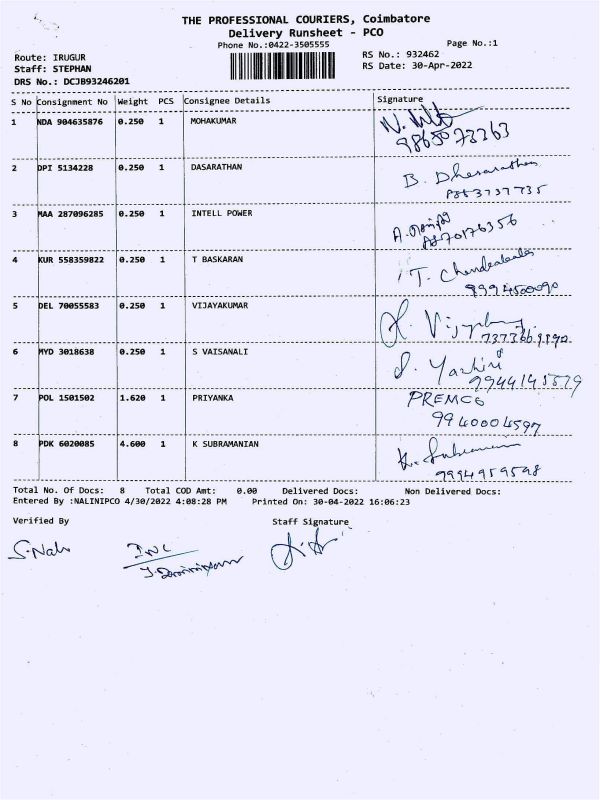 THE PROFESSIONAL COURIERS, Coimbatore
Delivery Runsheet - PCO
Phone No.:0422-3505555
Page No.:1
Route: IRUGUR
RS No.: 932462
Staff: STEPHAN
RS Date: 30-Apr-2022
DRS No.: DCJB93246201
S No Consignment No Weight PCS Consignee Details Signature
1 NDA 904635876 0.250 1 MOHAKUMAR
9865073363
2 DPI 5134228 0.250 1 DASARATHAN B. Dhesarathan
3 MAA 287096285 0.250 1 INTELL POWER A.
4 KUR 558359822 0.250 1 T BASKARAN T.
9994500090
5 DEL 70055583 0.250 1 VIJAYAKUMAR
6 MYD 3018638 0.250 1 S VAISANALI
7 POL 1501502 1.620 1 PRIYANKA PREMCO
9940004597
8 PDK 6020085 4.600 1 K SUBRAMANIAN K. Subramanian
9994959598
Total No. Of Docs: 8 Total COD Amt: 0.00 Delivered Docs: Non Delivered Docs:
Entered By :NALINIPCO 4/30/2022 4:08:28 PM Printed On: 30-04-2022 16:06:23
Verified By Staff Signature